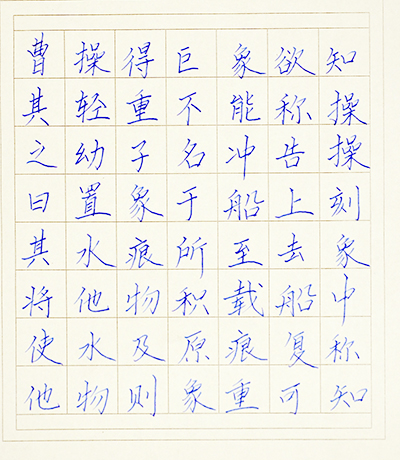 曹操得巨象欲知
其轻重不能称操
之幼子名冲告操
曰置象于船上刻
其水痕所至去象
将他物积载船中
使水及原痕复称
他物则象重可知